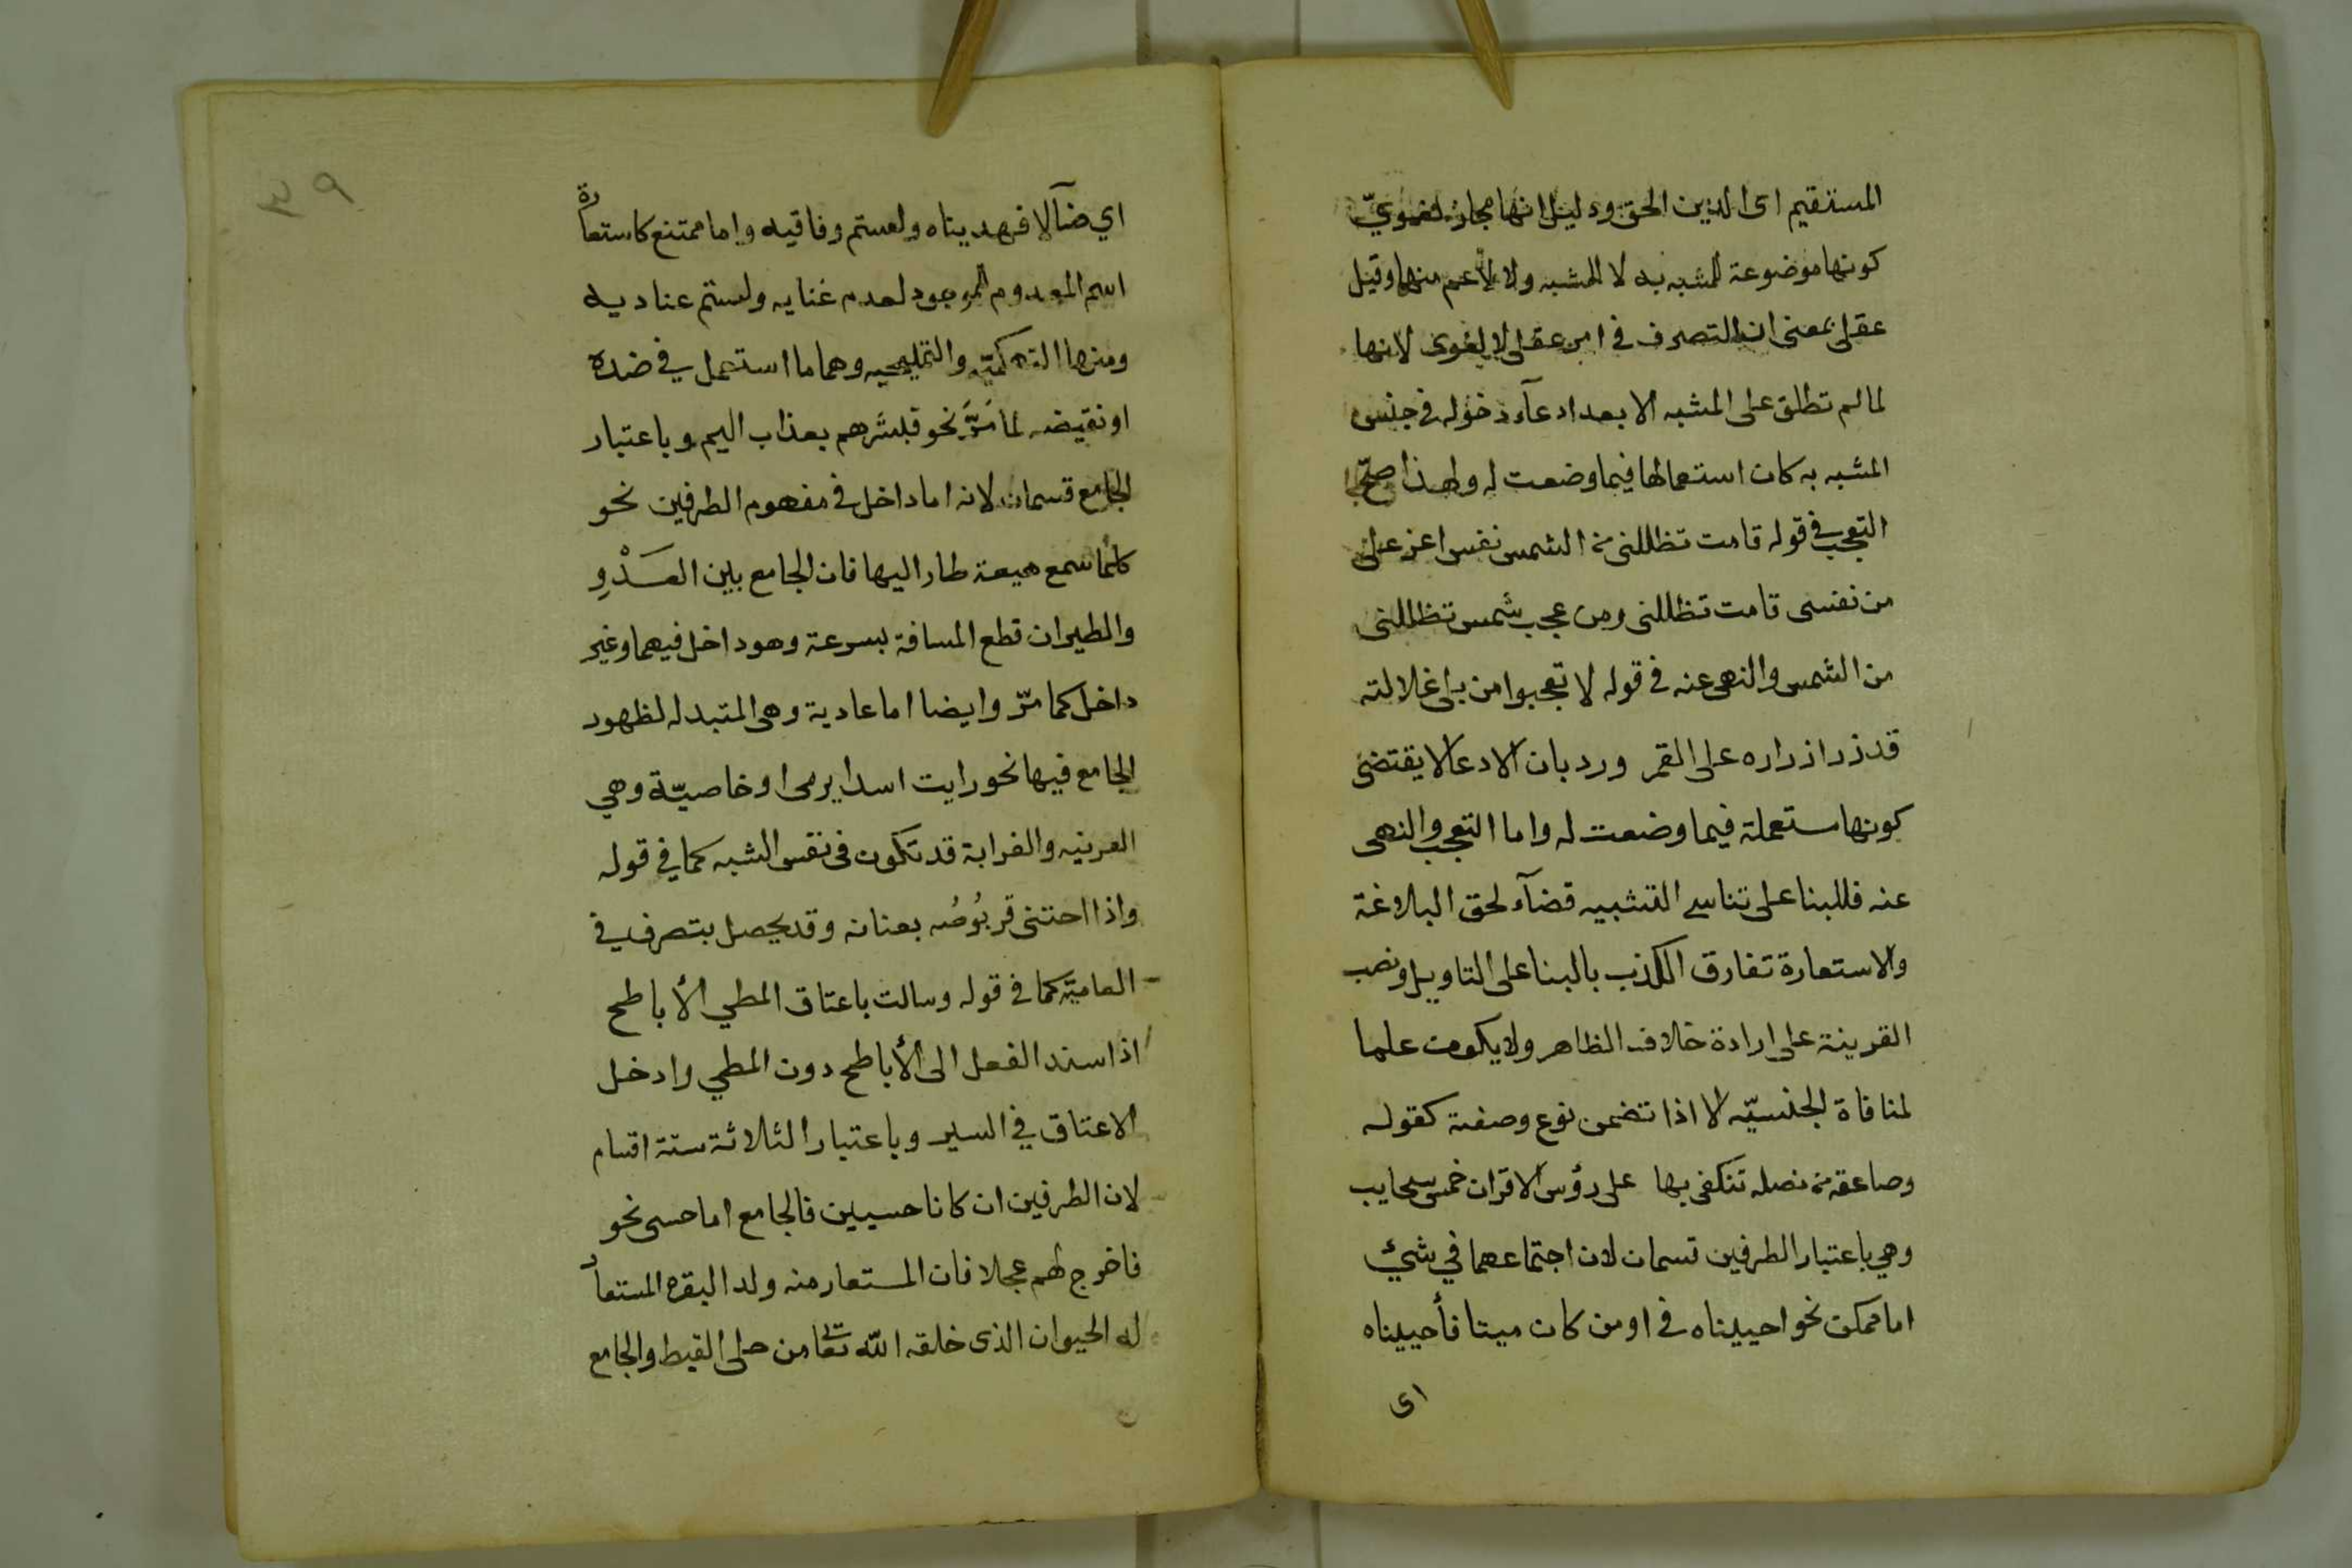 المستقيم اى الدين الحق ودليل انها مجاز لغوىّ
كونها موضوعة للمشبه به لا للمشبه ولا لأعم منهما وقيل
عقلى بمعنى ان التصرف فى امر عقلى لا لغوى لانها
لما لم تطلق على المشبه الا بعد ادعآء دخوله فى جنس
المشبه به كان استعمالها فيما وضعت له ولهذا صحّ
التعجب فى قوله قامت تظللنى من الشمس نفس اعز على
من نفسى قامت تظللنى ومن عجب شمس تظللنى
من الشمس والنهى عنه فى قوله لا تعجبوا من بلى غلالته
قد زر ازراره على القمر ورد بان الادعا لا يقتضى
كونها مستعملة فيما وضعت له واما التعجب والنهى
عنه فللبنا على تناسى التشبيه قضآء لحق البلاغة
والاستعارة تفارق الكذب بالبنا على التاويل ونصب
القرينة على ارادة خلاف الظاهر ولا يكون علما
لمنافاة الجنسيّه الا اذا تضمن نوع وصفية كقوله
وصاعقة من نصله تنكفى بها على رؤس الاقران خمس سحايب
وهي باعتبار الطرفين قسمان لان اجتماعهما في شيئ
اما ممكن نحو احييناه فى اومن كان ميتا فأحييناه
اى
٣٩
اي ضآلا فهديناه ولتسم وفاقيه واما ممتنع كاستعارة
اسم المعدوم للموجود لعدم غنايه ولتسم عناديه
ومنها التهكميّه والتمليحيه وهما ما استعمل في ضده
او نقيضه لما مَرَّ نحو فبشرهم بعذاب اليم وباعتبار
الجامع قسمان لانه اما داخل فى مفهوم الطرفين نحو
كلما سمع هيعة طار اليها فان الجامع بين العَدْوِ
والطيران قطع المسافة بسرعة وهو داخل فيهما وغير
داخل كما مرّ وايضا اما عادية وهى المتبدله لظهور
الجامع فيها نحو رايت اسدا يرمى او خاصيّة وهي
الغريبه والغرابة قد تكون فى نفس الشبه كما في قوله
واذا احتبى قربُوصُه بعنانه وقد يحصل بتصرف في
العاميّه كما فى قوله وسالت باعناق المطي الأباطح
اذ اسند الفعل الى الأباطح دون المطي وادخل
الاعناق في السير وباعتبار الثلاثة ستة اقسام
لان الطرفين ان كانا حسيين فالجامع اما حسى نحو
فاخرج لهم عجلا فان المستعار منه ولد البقره المستعار
له الحيوان الذى خلقه الله تعا من حلى القبط والجامع